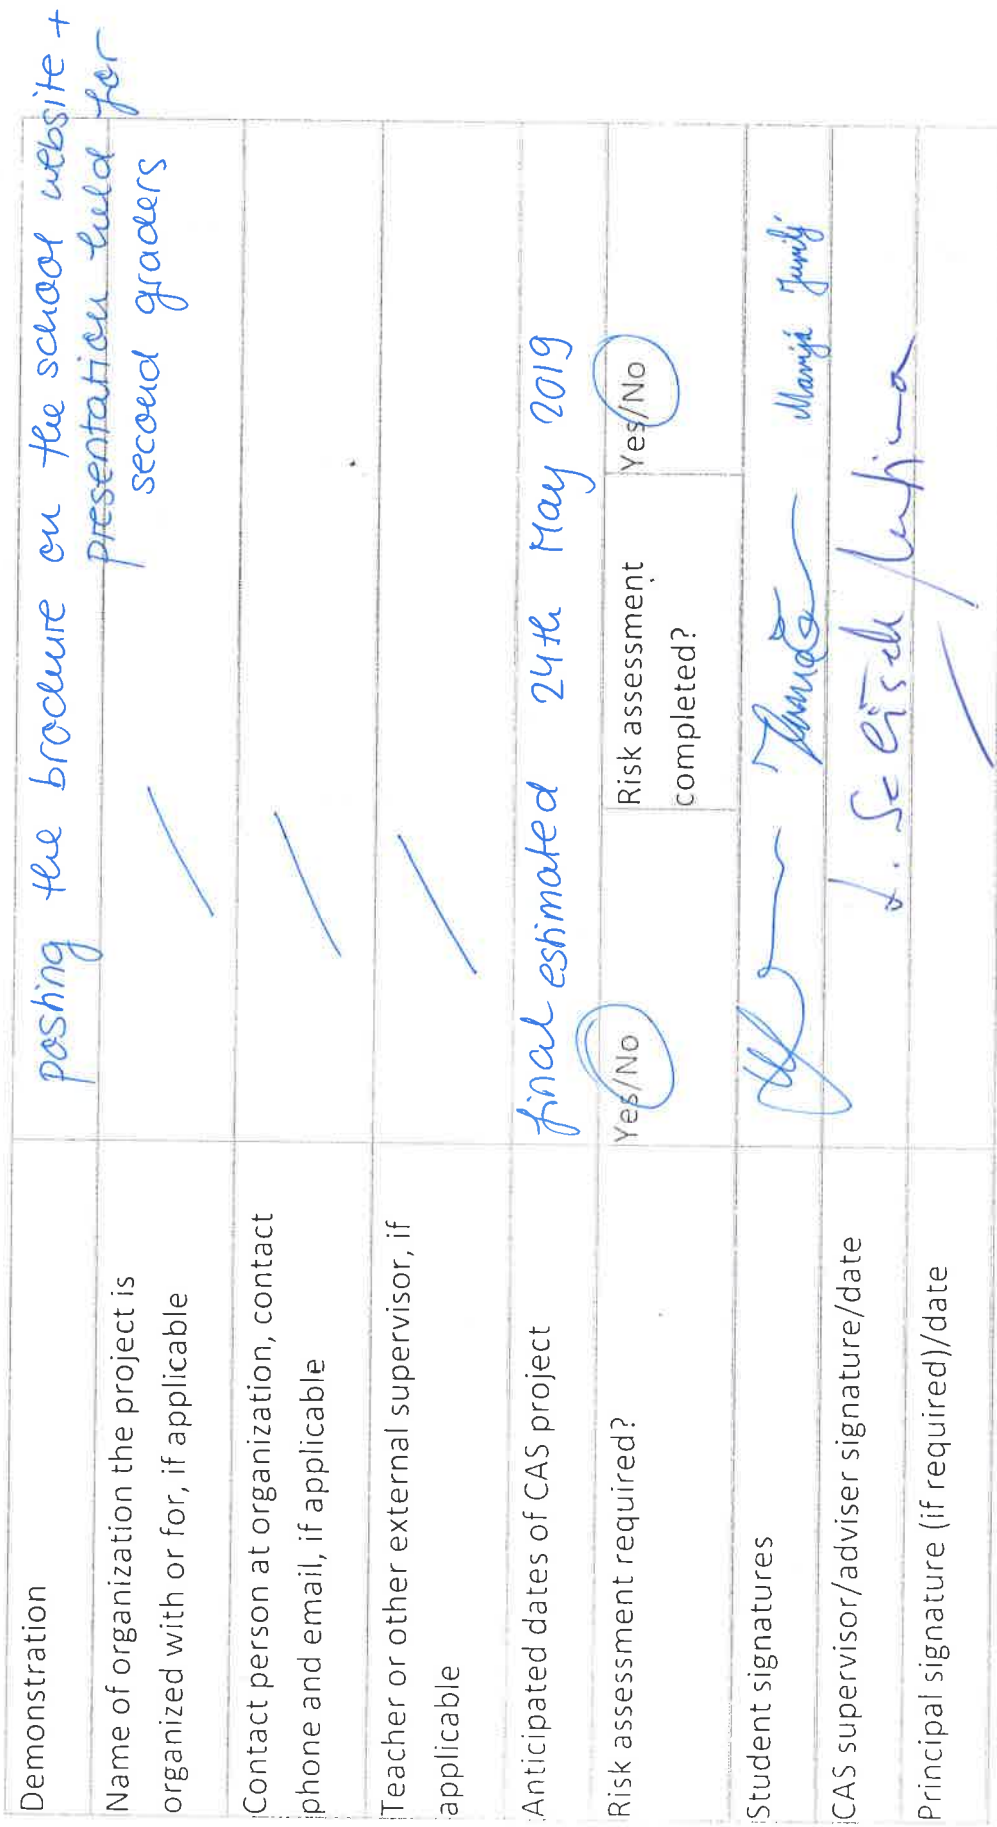 Demonstration
posting the brochure on the school website +
presentation held for
second graders
Name of organization the project is
organized with or for, if applicable
/
Contact person at organization, contact
phone and email, if applicable
/
Teacher or other external supervisor, if
applicable
/
Anticipated dates of CAS project
final estimated 24th May 2019
Risk assessment required?
Yes/No
Risk assessment
completed?
Yes/No
Student signatures
Marija
CAS supervisor/adviser signature/date
Principal signature (if required)/date
/